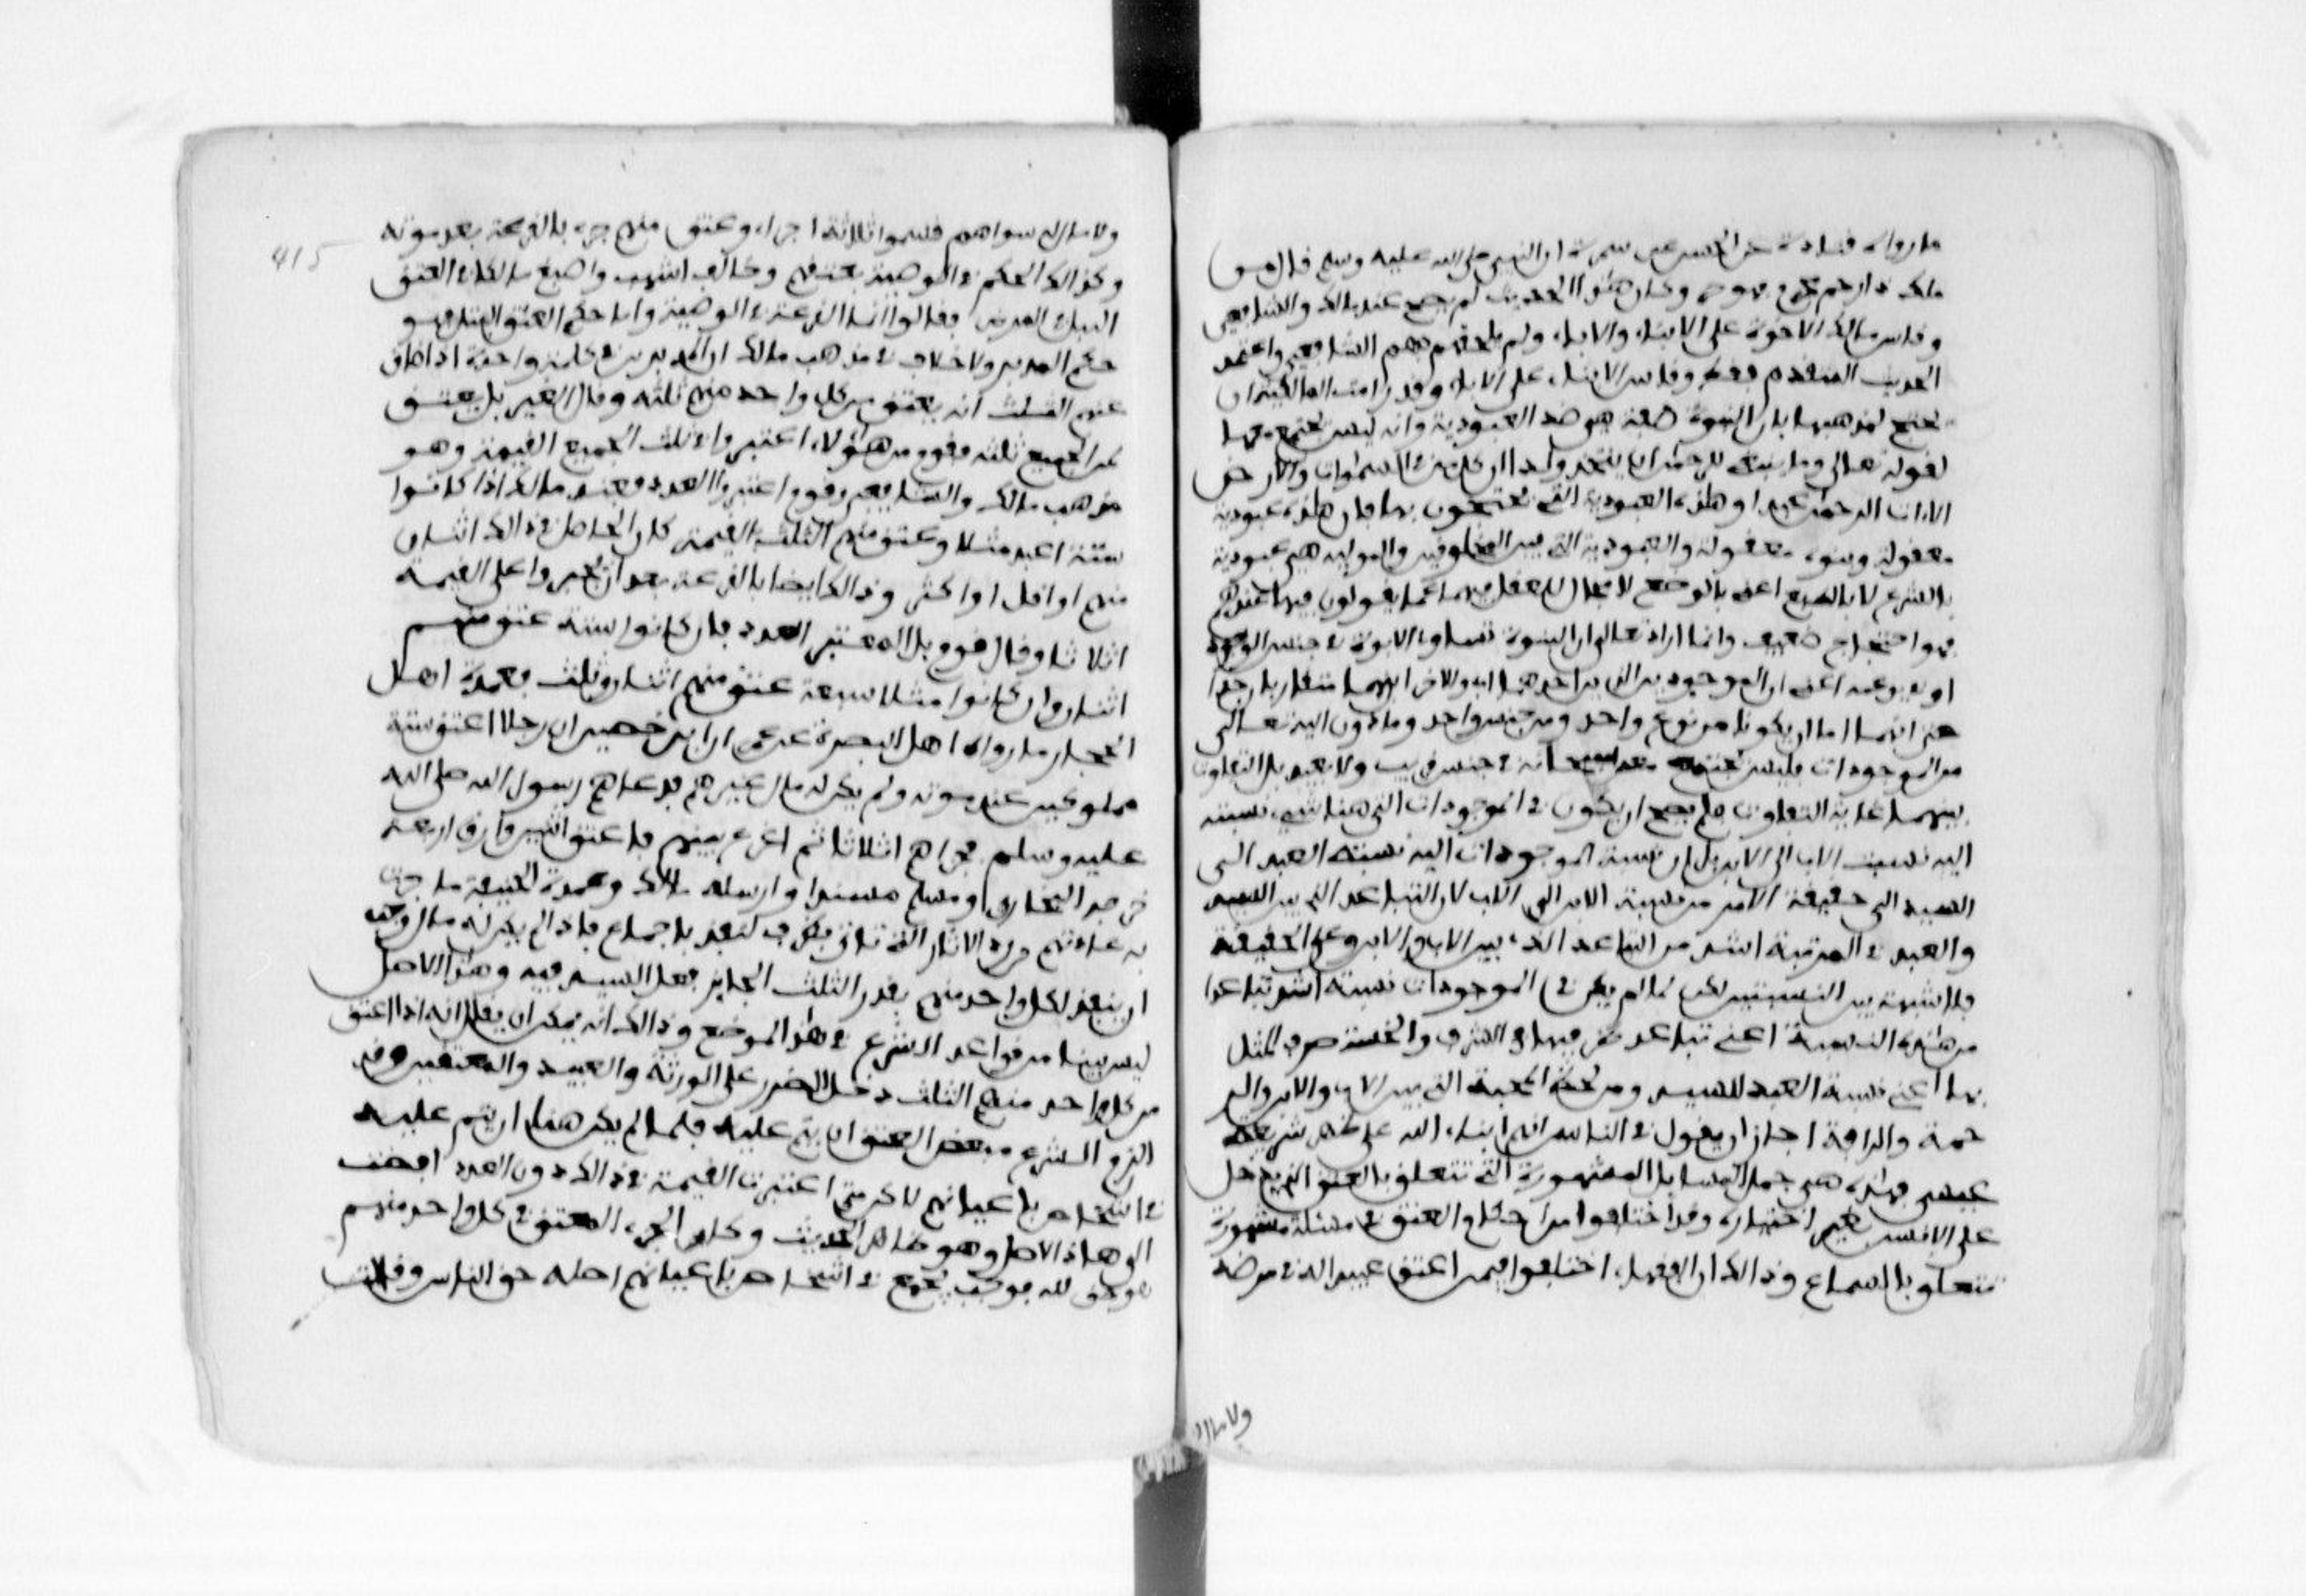 ما رواه قتادة عن الحسن عن سمرة ان النبي صلى الله عليه وسلم قال من
ملك ذا رحم محرم فهو حر وكان هذا الحديث لم يصح عند مالك والشافعي
وقاس مالك الاخوة على الابناء والاباء ولم يلحقهم بهم الشافعي واعتمد
الحديث المتقدم فقط وقاس الابناء على الاباء وقد رامت المالكية ان
تحتج لمذهبها بان البنوة صفة هي ضد العبودية وانه ليس تجتمع معها
لقوله تعالى وما ينبغي للرحمن ان يتخذ ولدا ان كل من في السموات والارض
الا اتى الرحمن عبدا وهذه العبودية التي يحتجون بها فان هذه عبودية
معقولة وبنوة معقولة والعبودية التي بين المخلوقين والموالي هي عبودية
بالشرع لا بالطبع اعني بالوضع لا مجال للعقل فيها كما يقولون فيها عندهم
فهو احتجاج ضعيف وانما اراد تعالى ان البنوة تساوي الابوة في جنس الوجود
او نوعه اعني ان الموجودين الذين احدهما اب والاخر ابن هما متقاربان جدا
حتى انهما اما ان يكونا من نوع واحد ومن جنس واحد وما دون اليه تعالى
من الموجودات فليس يجتمع معه سبحانه في جنس قريب ولا بعيد بل التفاوت
بينهما غاية التفاوت فلم يصح ان يكون في الموجودات التي هنا شيء نسبته
اليه نسبة الاب الى الابن بل ان نسبة الموجودات اليه نسبة العبد الى
السيد الى حقيقة الامر من نسبة الابن الى الاب لان التباعد الذي بين السيد
والعبد في المرتبة اشد من التباعد الذي بين الاب والابن وعلى الحقيقة
فلا شبهة بين النسبتين لكن لما لم يكن في الموجودات نسبة اشد تباعدا
من هذه النسبة اعني تباعد طرفيها في الشرف والخسة ضرب المثل
بها اعني نسبة العبد للسيد ومن لحظ المحبة التي بين الاب والابن والر
حمة والرافة اجاز ان يقول في الناس انهم ابناء الله على ظاهر شريعة
عيسى فهذه هي جمل المسايل المشهورة التي تتعلق بالعتق الذي يدخل
على الانسان بغير اختياره وقد اختلفوا من احكام العتق في مسئلة مشهورة
تتعلق بالسماع وذالك ان الفقهاء اختلفوا فيمن اعتق عبيدا له في مرضه
ولا مال
415
ولا مال له سواهم قسموا ثلاثة اجزاء وعتق منهم جزء بالقرعة بعد موته
وكذالك الحكم في الوصية بعتقهم وخالف اشهب واصبغ مالكا في العتق
البتل في المرض فقالا انما القرعة في الوصية واما حكم العتق البتل فهو
حكم المدبر ولا خلاف في مذهب مالك ان المدبرين في كلمة واحدة اذا ضاق
عنهم الثلث انه يعتق من كل واحد منهم ثلثه وقال الغير بل يعتق
من الجميع ثلثه فقوم من هؤلاء اعتبروا في ثلث الجميع القيمة وهو
مذهب مالك والشافعي وقوم اعتبروا العدد فعند مالك اذا كانوا
ستة اعبد مثلا وعتق منهم الثلث بالقيمة كان الحاصل في ذالك اثنان
منهم او اقل او اكثر وذالك ايضا بالقرعة بعد ان يجبروا على القيمة
اثلاثا وقال قوم بل المعتبر العدد فان كانوا ستة عتق منهم
اثنان وان كانوا مثلا سبعة عتق منهم اثنان وثلث فعمدة اهل
الحجاز ما رواه اهل البصرة عن عمران بن حصين ان رجلا اعتق ستة
مملوكين عند موته ولم يكن له مال غيرهم فدعاهم رسول الله صلى الله
عليه وسلم فجزاهم اثلاثا ثم اقرع بينهم فاعتق اثنين وارق اربعة
خرجه البخاري ومسلم مسندا وارسله مالك وعمدة الحنفية ما جرت
به عادتهم من رد الاثار التي تاتي بطرق لنفذ باجماع فاذا لم يكن له مال وجب
ان ينفذ لكل واحد منهم بقدر الثلث الجايز فعل السيد فيه وهذا الاصل
ليس بينا من قواعد الشرع في هذا الموضع وذالك انه يمكن ان يقال انه اذا اعتق
من كل واحد منهم الثلث دخل الضرر على الورثة والعبيد والمعتقين وقد
الزم الشرع مبعض العتق ان يتم عليه فلما لم يكن هنا ان يتم عليه
في اشخاص باعيانهم لاكن متى اعتبرت القيمة في ذالك دون العدد افضت
الى هاذا الاصل وهو ظاهر الحديث وكان الجزء المعتق في كل واحد منهم
هو حق لله فوجب يجمع في اشخاص باعيانهم اصله حق الناس وقالت